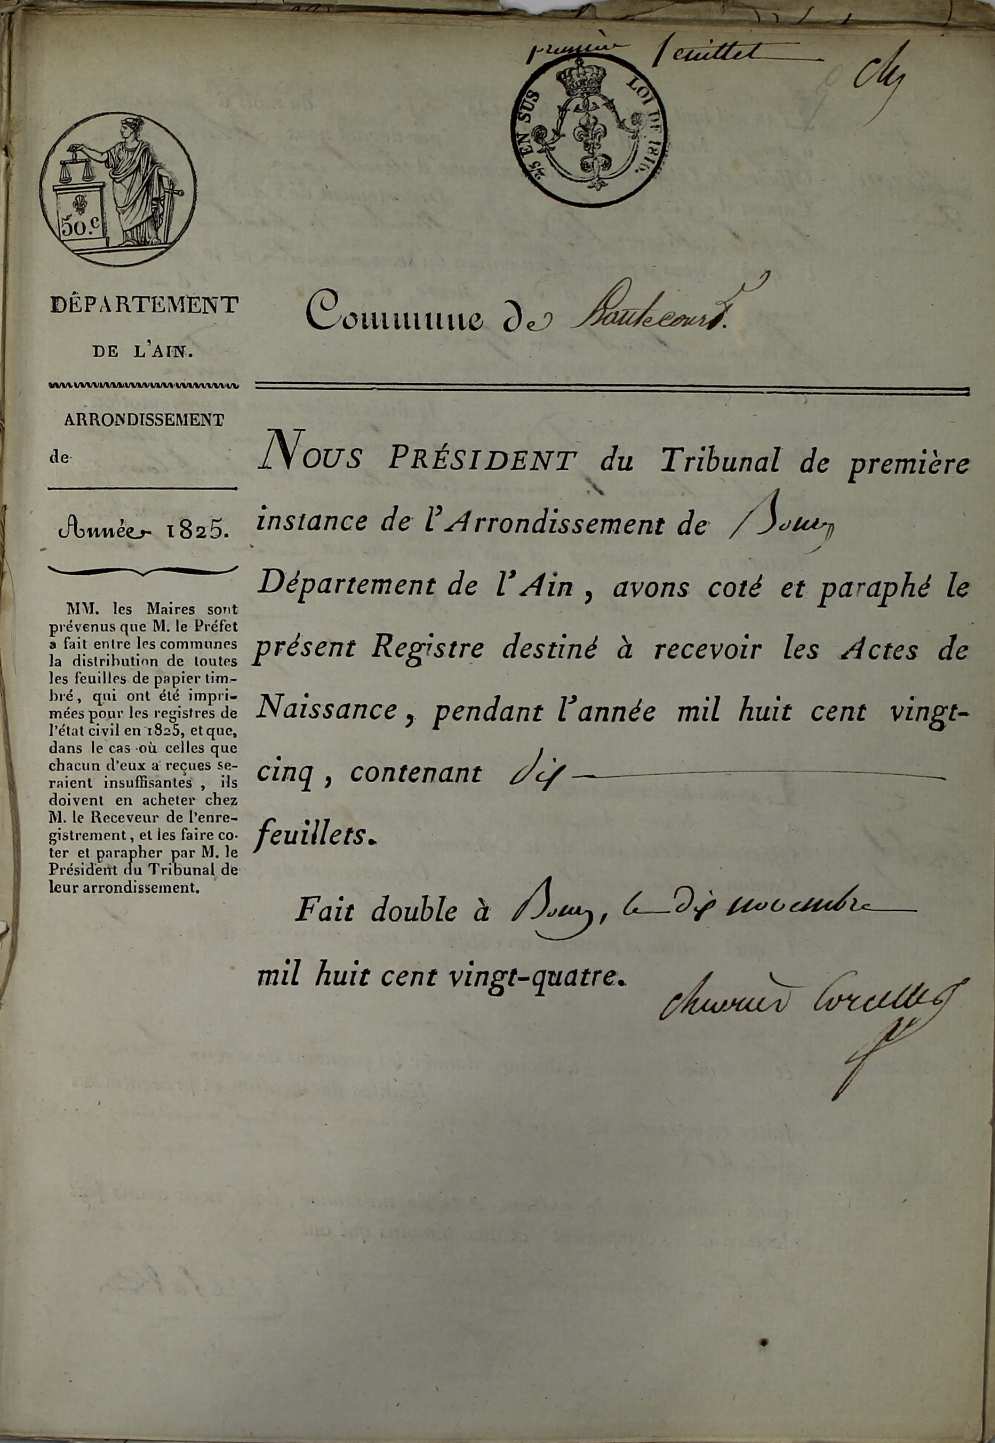 première feuillet
25 EN SUS LOI DE 1816.
50.c
DÉPARTEMENT
DE L'AIN.
ARRONDISSEMENT
de
Année 1825.
MM. les Maires sont
prévenus que M. le Préfet
a fait entre les communes
la distribution de toutes
les feuilles de papier tim-
bré, qui ont été impri-
mées pour les registres de
l'état civil en 1825, et que,
dans le cas où celles que
chacun d'eux a reçues se-
raient insuffisantes, ils
doivent en acheter chez
M. le Receveur de l'enre-
gistrement, et les faire co-
ter et parapher par M. le
Président du Tribunal de
leur arrondissement.
Commune de Hautecourt.
NOUS PRÉSIDENT du Tribunal de première
instance de l'Arrondissement de Bourg
Département de l'Ain, avons coté et paraphé le
présent Registre destiné à recevoir les Actes de
Naissance, pendant l'année mil huit cent vingt-
cinq, contenant dix
feuillets.
Fait double à Bourg, le dix novembre
mil huit cent vingt-quatre.